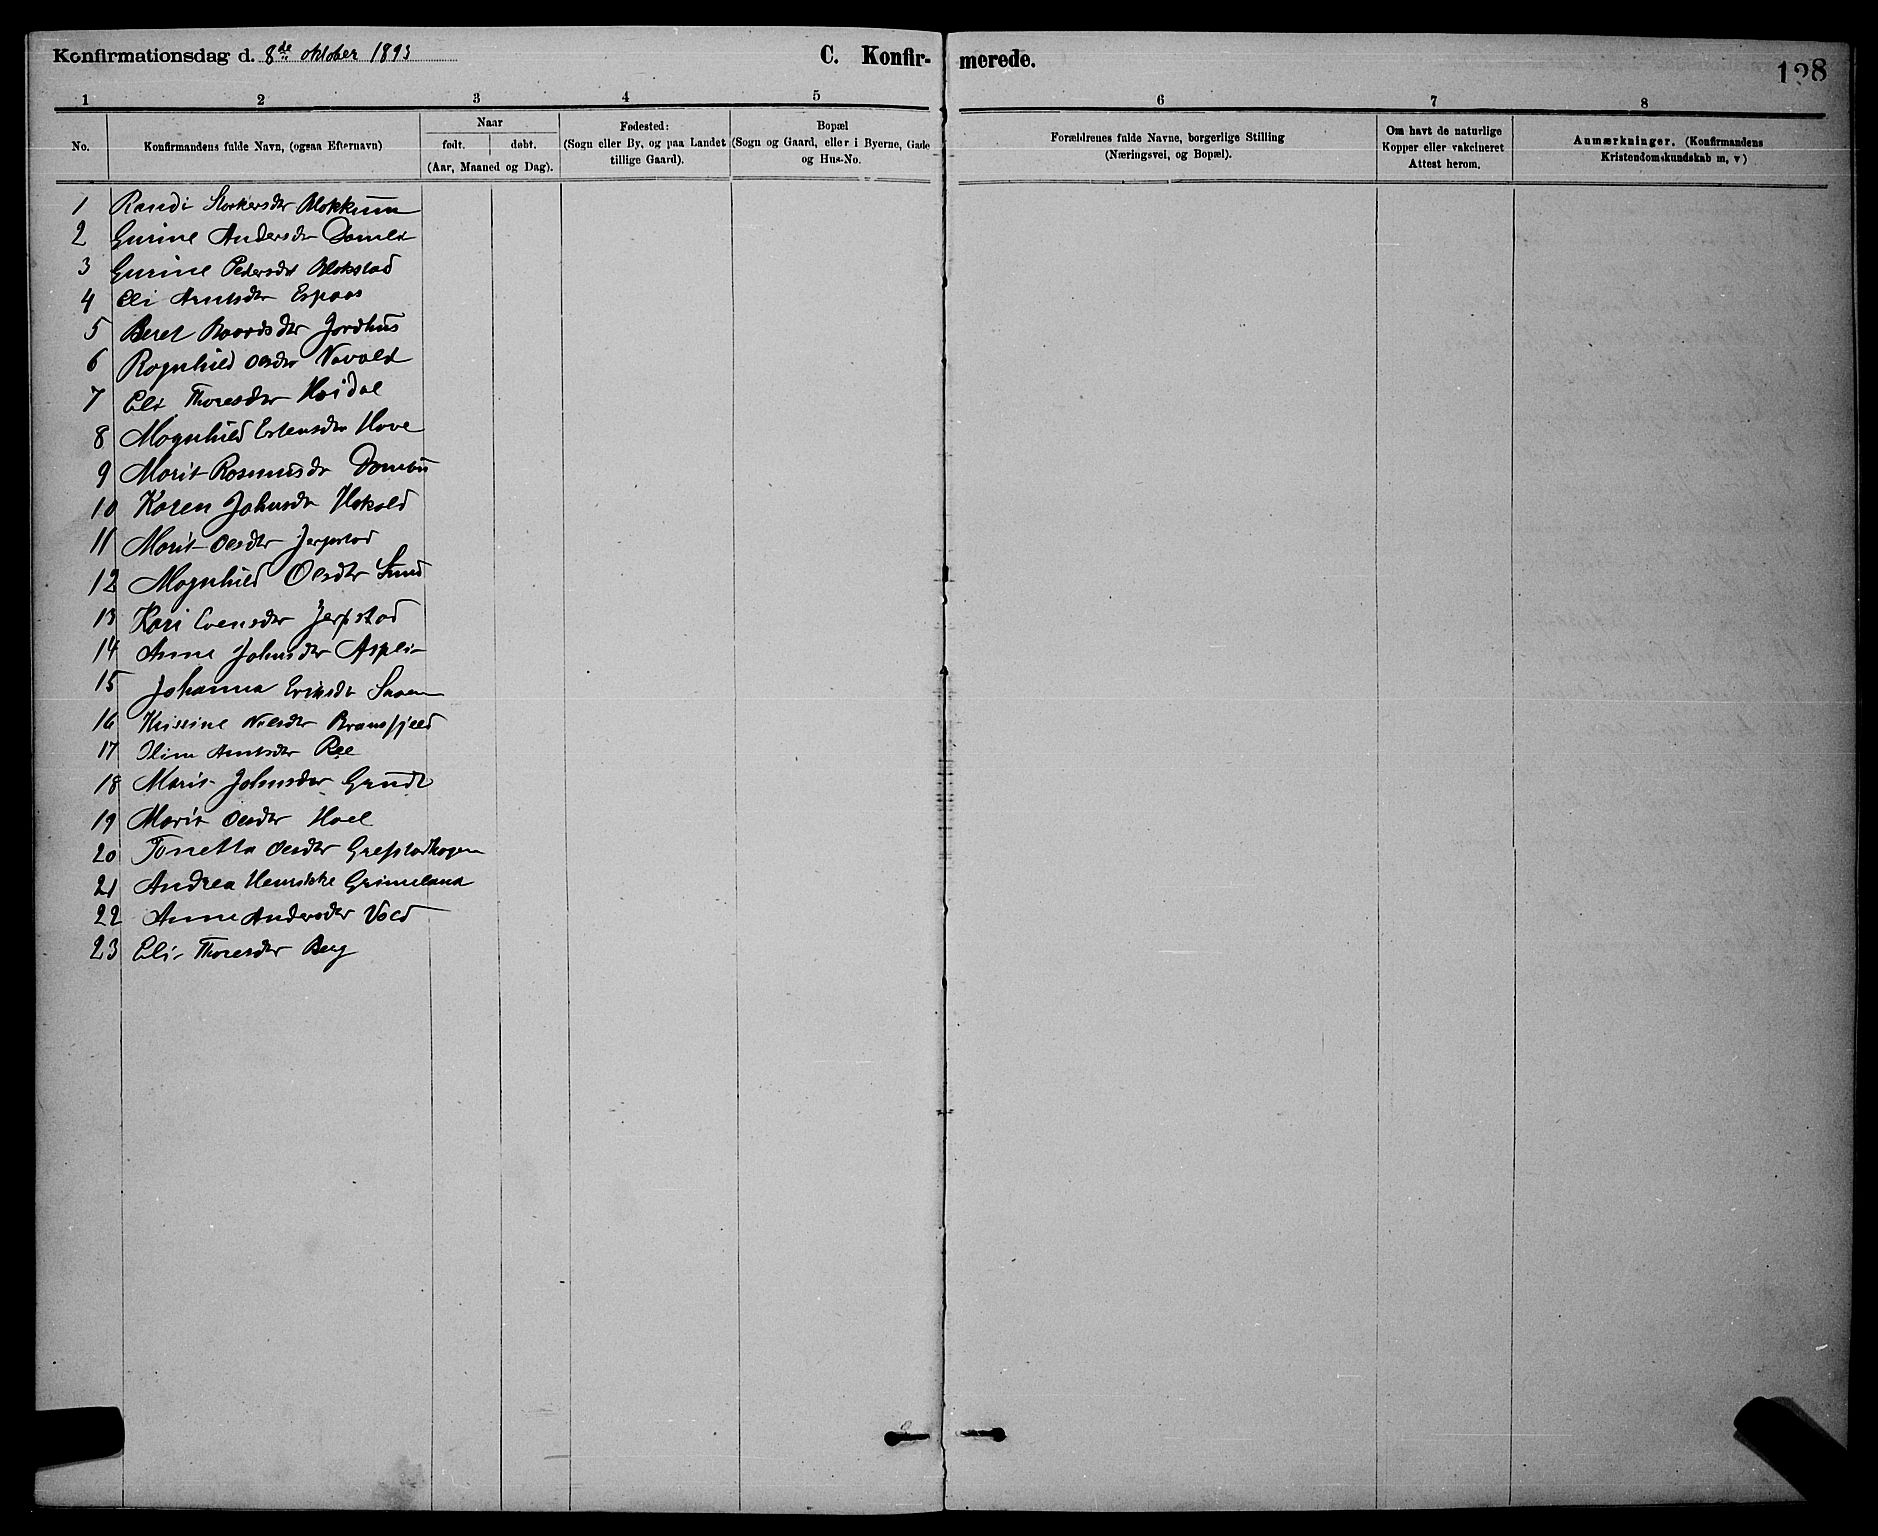 Konfirmationsdag d. 8de oktober 1893
C. Konfir- merede.
128
1 2 3 4 5 6 7 8
No.
Konfirmandens fulde Navn, (ogsaa Efternavn)
Naar
født. døbt.
(Aar, Maaned og Dag).
Fødested:
(Sogn eller By, og paa Landet
tillige Gaard).
Bopæl
(Sogn og Gaard, eller i Byerne, Gade
og Hus-No.
Forældrenes fulde Navne, borgerlige Stilling
(Næringsvei, og Bopæl).
Om havt de naturlige
Kopper eller vakcineret
Attest herom.
Anmærkninger. (Konfirmandens
Kristendomskundskab m, v)
1 Randi
2 Gurine Andersdtr
3 Gurine Pedersdtr
4 Eli Arntsdtr Espaas
5 Beret Baardsdtr Jordhus
6 Ragnhild Olsdtr
7 Eli Thoresdtr
8 Magnhild Estensdtr Hove
9 Marit Rasmusdtr
10 Karen Johnsdtr
11 Marit Olsdtr Jerpstad
12 Magnhild Olsdtr Sund
13 Kari Evensdtr Jerpstad
14 Anne Johnsdtr Aspli
15 Johanna Eriksdtr
16 Kristine Nilsdtr
17 Arntsdtr Ree
18 Marit Johnsdtr Grudt
19 Marit Olsdtr Hoel
20 Tonetta Olsdtr Grefstadhagen
21 Andrea Henrikke Grimeland
22 Anne Andersdtr Vold
23 Eli Thoresdtr Berg